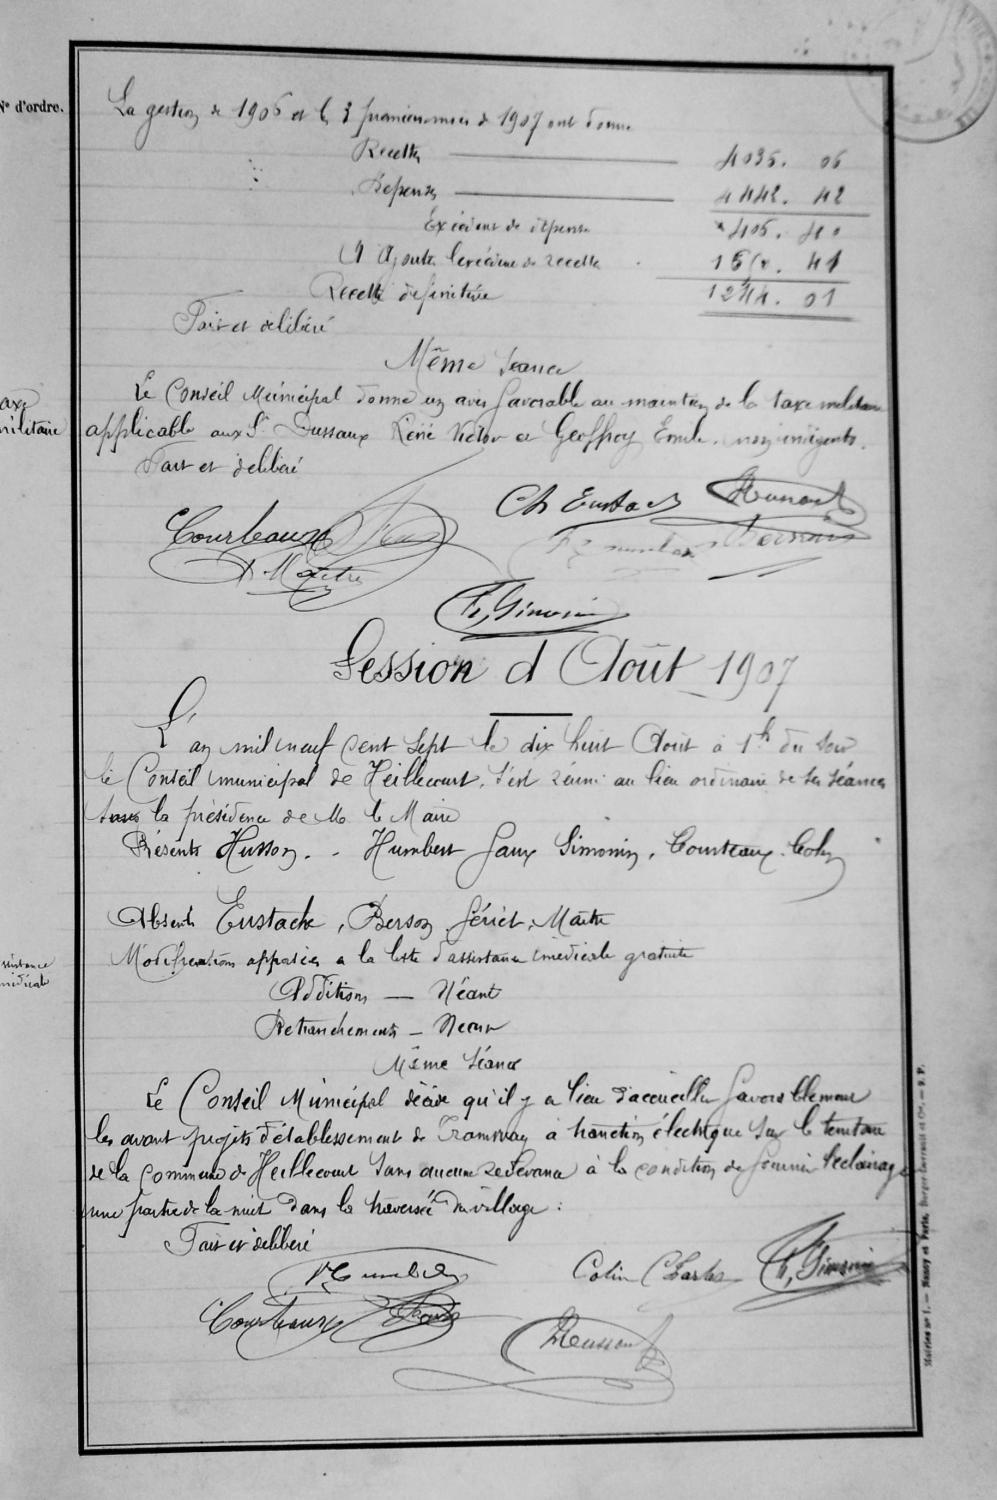 N° d'ordre.
La gestion de 1906 et les 3 premiers mois de 1907 ont donné
Recettes 4035. 06
Dépenses 4442. 42
Excédent de dépense 405. 40
A Ajouter l'excédent de recette 41
Recette définitive 1244. 01
Fait et délibéré
Même séance
Le Conseil Municipal donne un avis favorable au maintien de la taxe militaire
axe
militaire
applicable aux Sr Dussaux René Victor et Geoffroy Emile, non indigents.
Fait et délibéré
Ch Eustach
Courteaux
Maître
Th, Simonin
Session d'Août 1907
L'an mil neuf cent sept le dix huit Août à 1h du soir
le Conseil municipal de Heillecourt, s'est réuni au lieu ordinaire de ses séances
sous la présidence de M. le Maire
Présents Husson. - Humbert Simonin, Courteaux. Colin
Absents Eustache, Berson, Fériet, Maitre
ssistance
médicale
Modifications apposées a la liste d'assistance médicale gratuite
Additions — Néant
Retranchements — Néant
Même séance
Le Conseil Municipal décide qu'il y a lieu d'accueillir favorablement
les avant projets d'établissement de Tramway à traction électrique sur le territoire
de la commune de Heillecourt sans aucune redevance à la condition de fournir l'éclairage
une partie de la nuit dans la traversée du village :
Fait et délibéré
Humbert
Colin Charles Th, Simonin
Courteaux
Husson
Mairies n° 1. — Nancy et Paris, Berger-Levrault et Cie. — S. P.